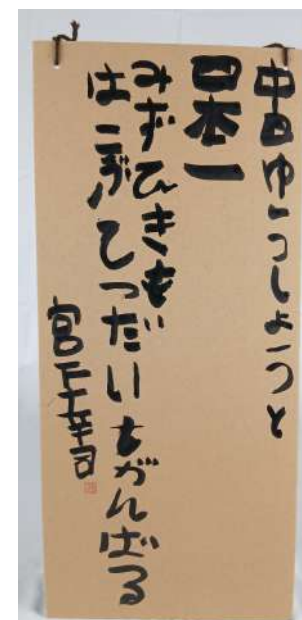 中日ゆうしょうと
日本一
みずひきも
はこぶてつだいもがんばる
宮下幸司